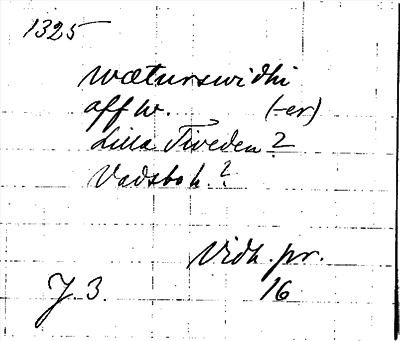 1325
wæturswidhi
aff w. (-er)
Lilla Tiveden?
Vadsbok.?
Vidh. pr.
J. 3. 16